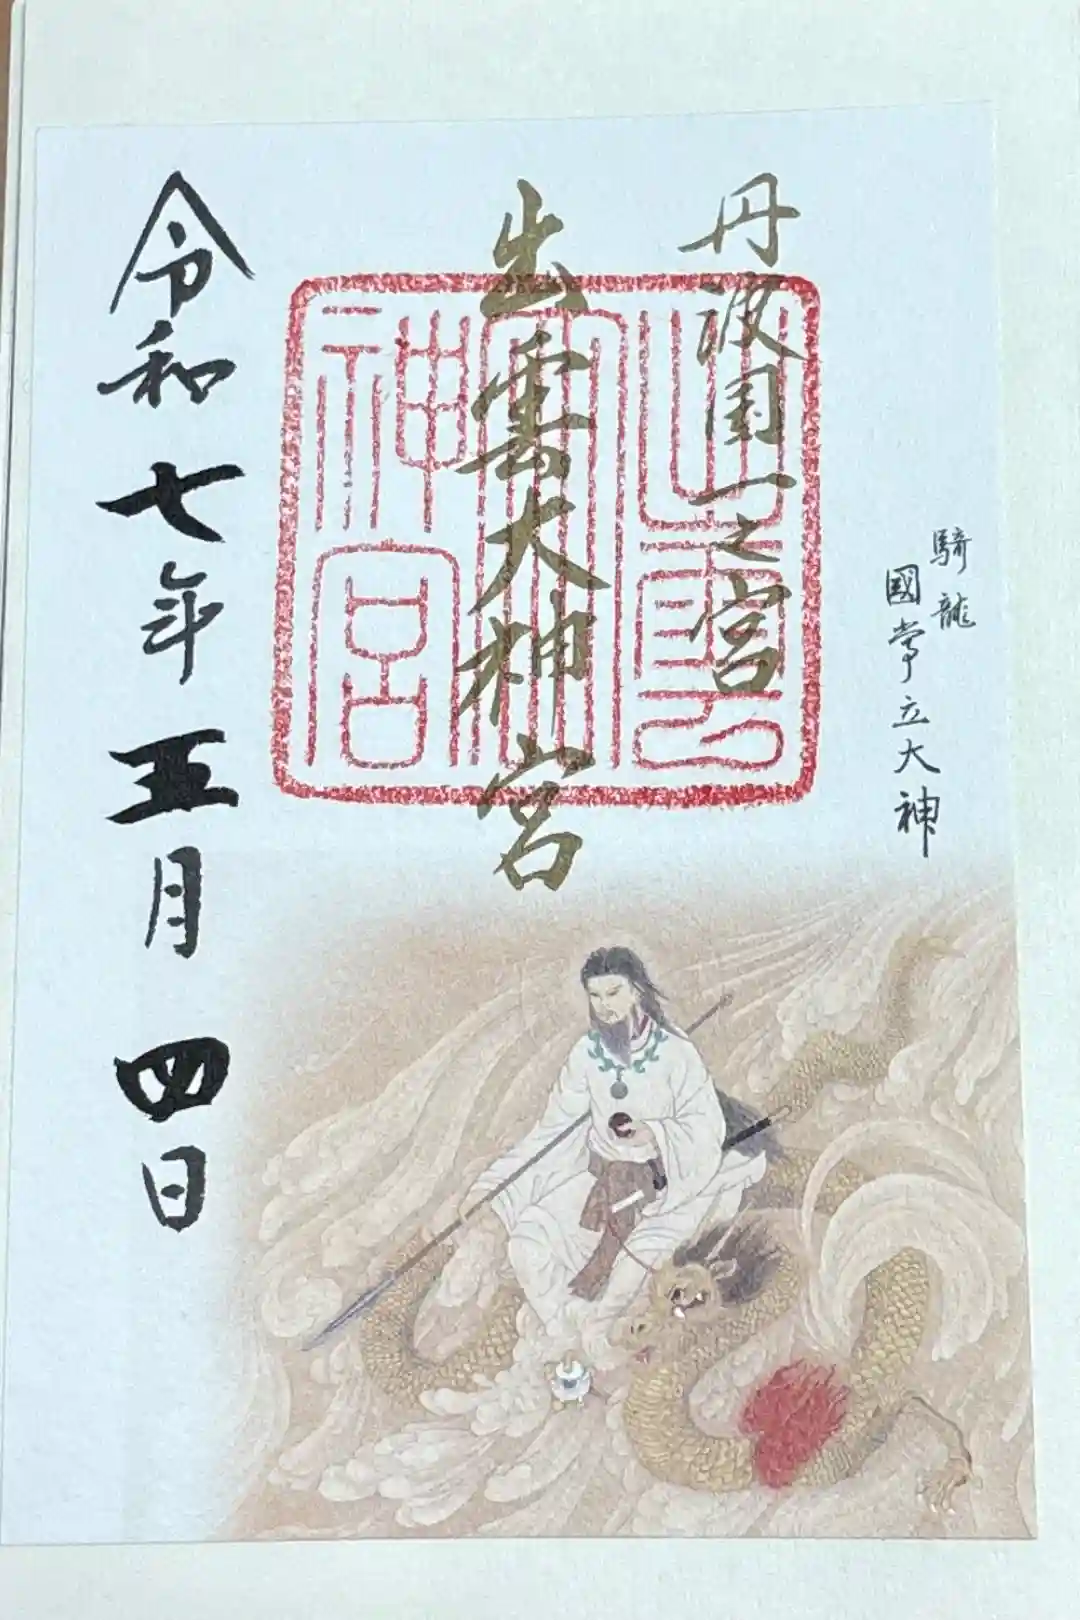 丹波国一之宮
出雲大神宮
騎龍
國常立大神
令和七年五月四日
出雲
大神宮